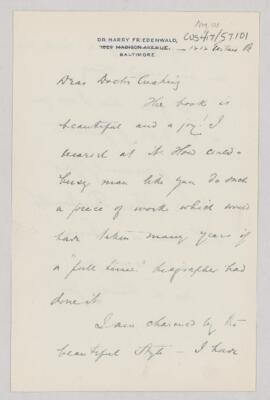 CUS417/57101
DR. HARRY FRIEDENWALD,
1029 MADISON AVENUE,
1212 Eutaw Pl
BALTIMORE.
Dear Doctor Cushing
The book is
beautiful and a joy! I
marvel at it. How could a
busy man like you do such
a piece of work which would
have taken many years if
a "full time" biographer had
done it.
I am charmed by the
beautiful style – I have